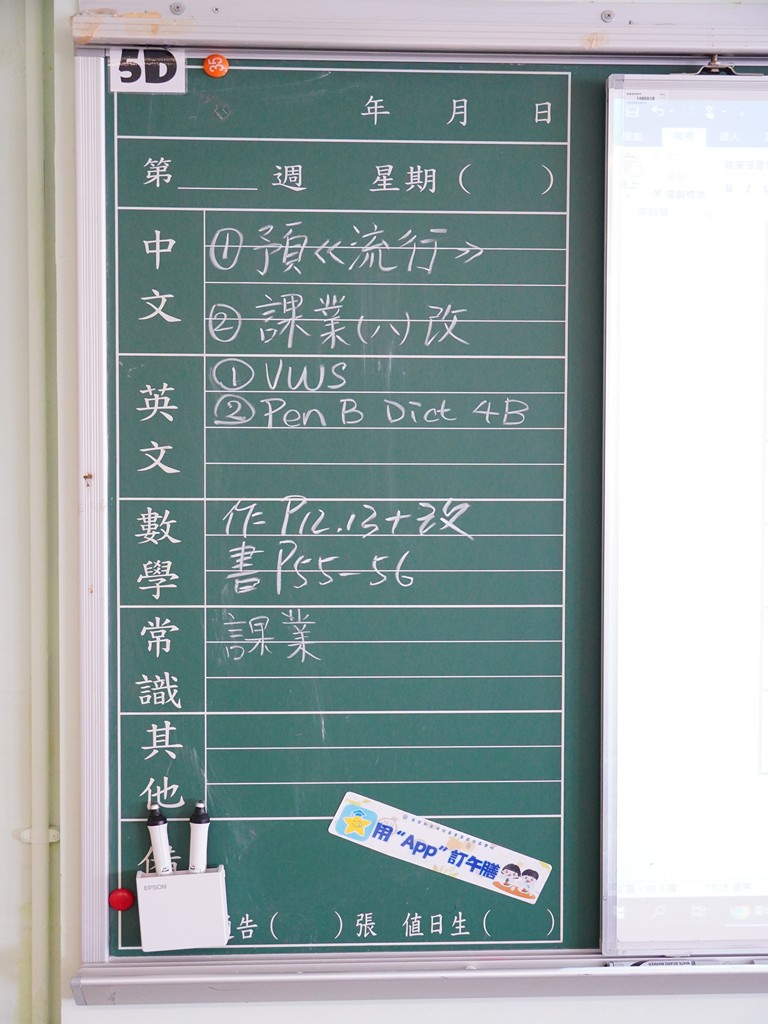 5D
35
年 月 日
第____週 星期( )
中文
①預《流行》
②課業(八)改
英文
①VWS
②Pen B Dict 4B
數學
作P12.13+改
書P55-56
常識
課業
其他
備
EPSON
用"App"訂午膳
告( )張 值日生( )